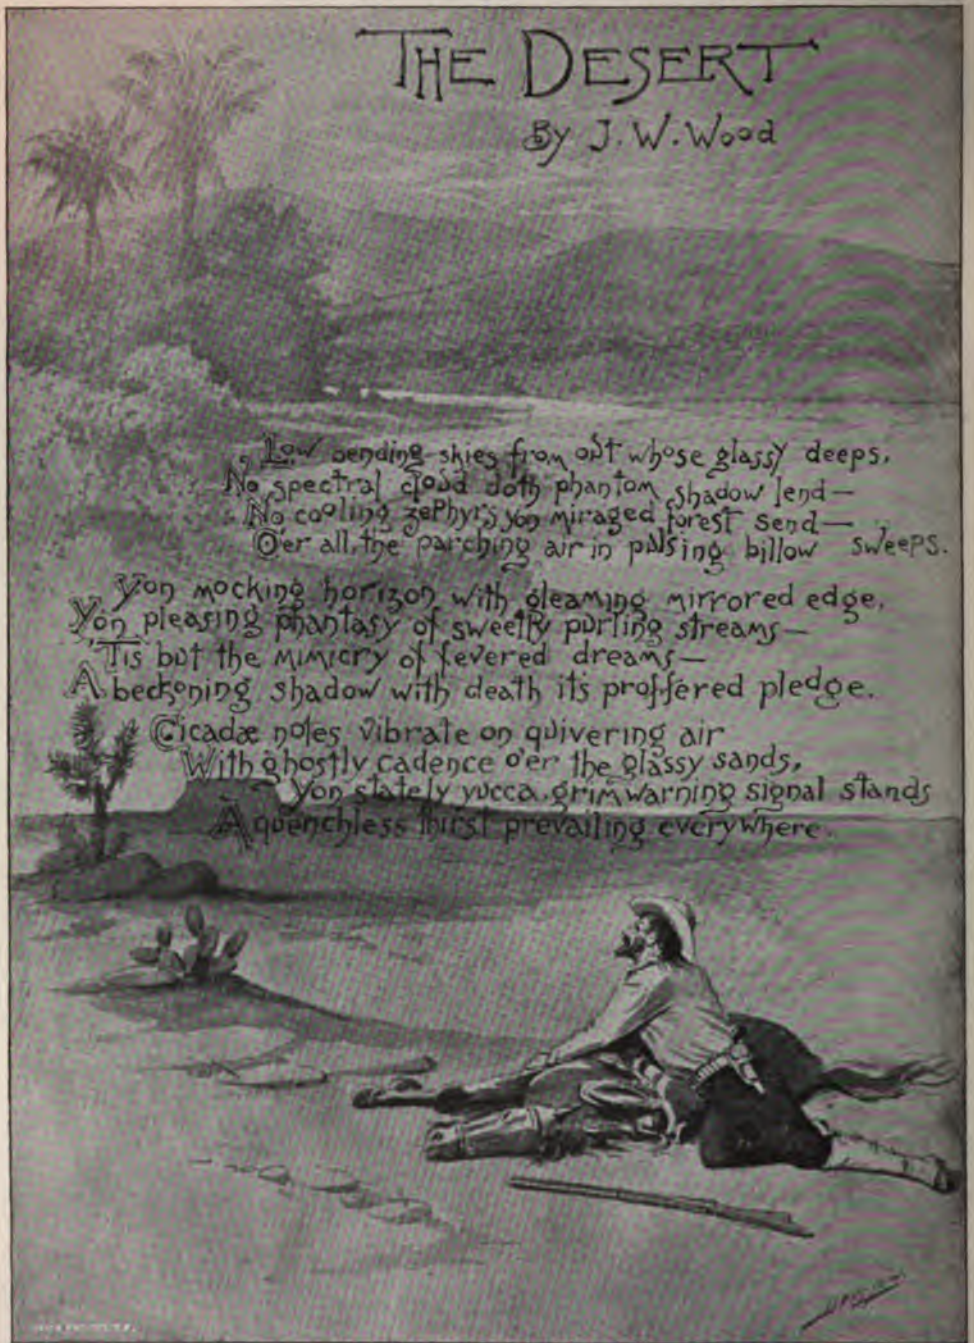 THE DESERT
By J. W. Wood
Low bending skies from out whose glassy deeps,
No spectral cloud doth phantom shadow lend—
No cooling zephyrs yon miraged forest send—
O'er all, the parching air in pulsing billow sweeps.
Yon mocking horizon with gleaming mirrored edge,
Yon pleasing phantasy of sweetly purling streams—
'Tis but the mimicry of fevered dreams—
A beckoning shadow with death its proffered pledge.
Cicadæ notes vibrate on quivering air
With ghostly cadence o'er the glassy sands,
Yon stately yucca, grim warning signal stands
A quenchless thirst prevailing everywhere.